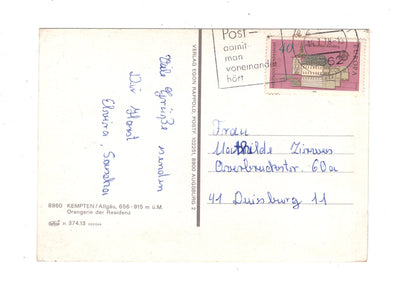 Viele Grüße senden
Dir Horst
Elvira, Sascha
8960 KEMPTEN/Allgäu, 656 - 915 m ü.M.
Orangerie der Residenz
H 374.13
VERLAG EGON RAPPOLD, POSTF. 102251, 8900 AUGSBURG 2
Post-
damit
man
voneinander
hört
40
EUROPA
Frau
Mathilde Zirwes
Overbruckstr. 60a
41 Duisburg 11